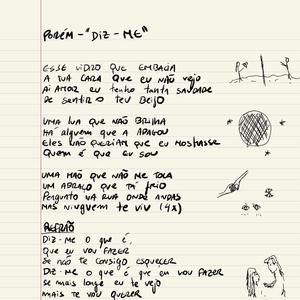 PORÉM - "DIZ - ME"
ESSE VIDRO QUE EMBACIA
A TUA CARA QUE EU NÃO VEJO
AI AMOR EU TENHO TANTA SAUDADE
DE SENTIR O TEU BEIJO
UMA LUA QUE NÃO BRILHA
HÁ ALGUEM QUE A APAGOU
ELES NÃO QUERIAM QUE EU MOSTRASSE
QUEM É QUE EU SOU
UMA MÃO QUE NÃO ME TOCA
UM ABRAÇO QUE TÁ FRIO
PERGUNTO NA RUA ONDE ANDAS
MAS NINGUEM TE VIU (4x)
REFRÃO
DIZ-ME O QUE É,
QUE EU VOU FAZER
SE NÃO TE CONSIGO ESQUECER
DIZ-ME O QUE É QUE EU VOU FAZER
SE MAIS LONGE EU TE VEJO
MAIS TE VOU QUERER